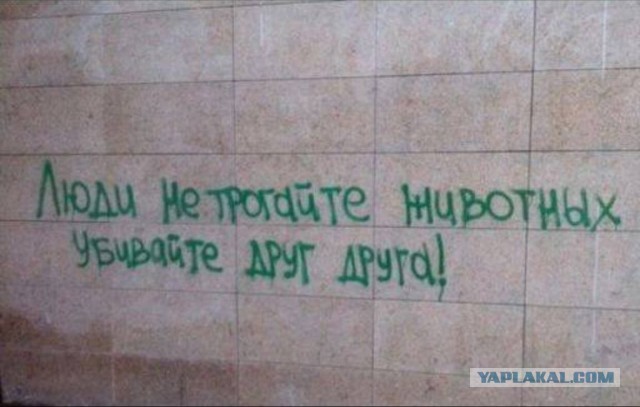 Люди не трогайте животных
Убивайте друг друга!
YAPLAKAL.COM